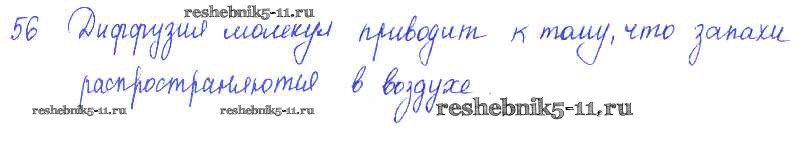 reshebnik5-11.ru
56 Диффузия молекул приводит к тому, что запахи
распространяются в воздухе.
reshebnik5-11.ru reshebnik5-11.ru reshebnik5-11.ru